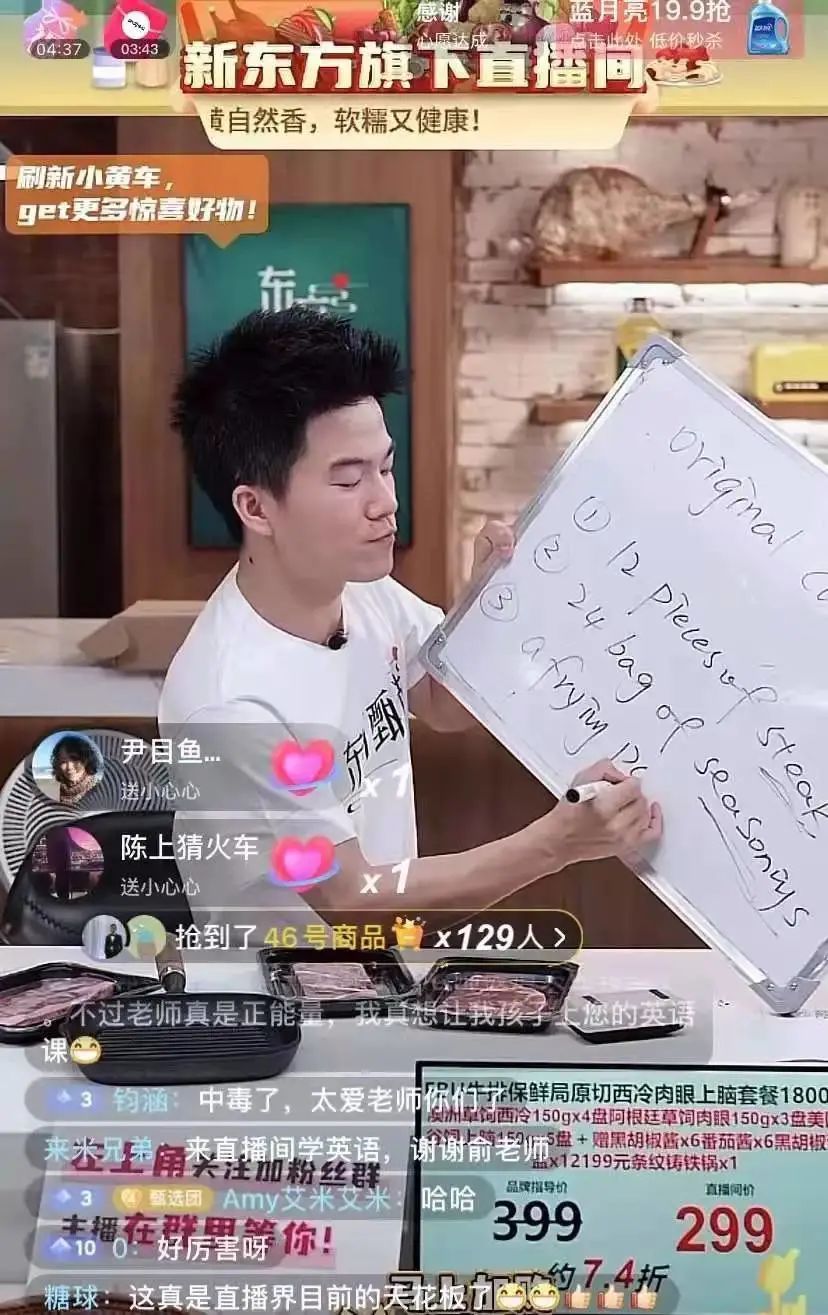 04:37
03:43
感谢
心愿达成
蓝月亮19.9抢
点击此处 低价秒杀
新东方旗下直播间
黄自然香，软糯又健康！
刷新小黄车，
get更多惊喜好物！
东
original
① 12 pieces of steak
② 24 bag of seasonings
③ a frying
甄
尹目鱼...
送小心心
x 1
陈上猜火车
送小心心
x 1
抢到了 46号商品 x129人 >
。不过老师真是正能量，我真想让我孩子上您的英语
课😁
3 钧涵：中毒了，太爱老师你们了
来米兄弟：来直播间学英语，谢谢俞老师
3 甄选团 Amy艾米艾米：哈哈
10 0：好厉害呀
糖球：这真是直播界目前的天花板了😁😁👍👍👍
左上角关注加粉丝群
主播在群里等你！
牛排保鲜局原切西冷肉眼上脑套餐1800
澳洲草饲西冷150gx4盘阿根廷草饲肉眼150gx3盘美国
谷饲上脑150gx5盘 + 赠黑胡椒酱x6番茄酱x6黑胡椒
盐x12199元条纹铸铁锅x1
品牌指导价
399
直播间价
299
约7.4折